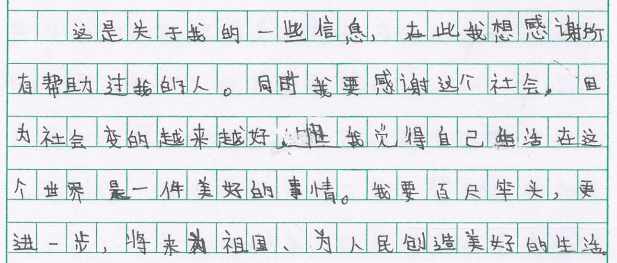 这是关于我的一些信息，在此我想感谢所
有帮助过我的人。同时我要感谢这个社会，因
为社会变的越来越好，让我觉得自己生活在这
个世界是一件美好的事情。我要百尺竿头，更
进一步，将来为祖国、为人民创造美好的生活。